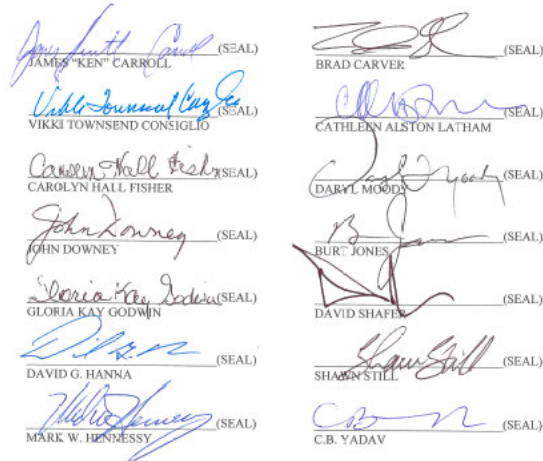 James Smith Carroll (SEAL)
JAMES "KEN" CARROLL
Vikki Townsend Consiglio (SEAL)
VIKKI TOWNSEND CONSIGLIO
Carolyn Hall Fisher (SEAL)
CAROLYN HALL FISHER
John Downey (SEAL)
JOHN DOWNEY
Gloria Kay Godwin (SEAL)
GLORIA KAY GODWIN
(SEAL)
DAVID G. HANNA
(SEAL)
MARK W. HENNESSY
(SEAL)
BRAD CARVER
(SEAL)
CATHLEEN ALSTON LATHAM
Daryl Moody (SEAL)
DARYL MOODY
(SEAL)
BURT JONES
(SEAL)
DAVID SHAFER
Shawn Still (SEAL)
SHAWN STILL
(SEAL)
C.B. YADAV